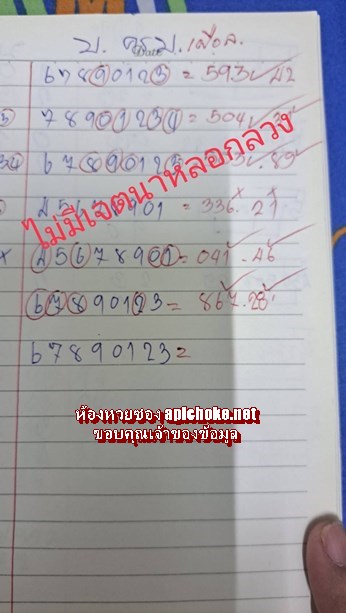 บ. ครบ. เมือล.
67890123 = 593 42
③ 78901234 = 504
34 67890123 89
45678901 = 336. 21
x 45678901 = 041 . 46
67890123 = 867.28
67890123 =
ไม่มีเจตนาหลอกลวง
ห้องหวยซอง apichoke.net
ขอบคุณเจ้าของข้อมูล